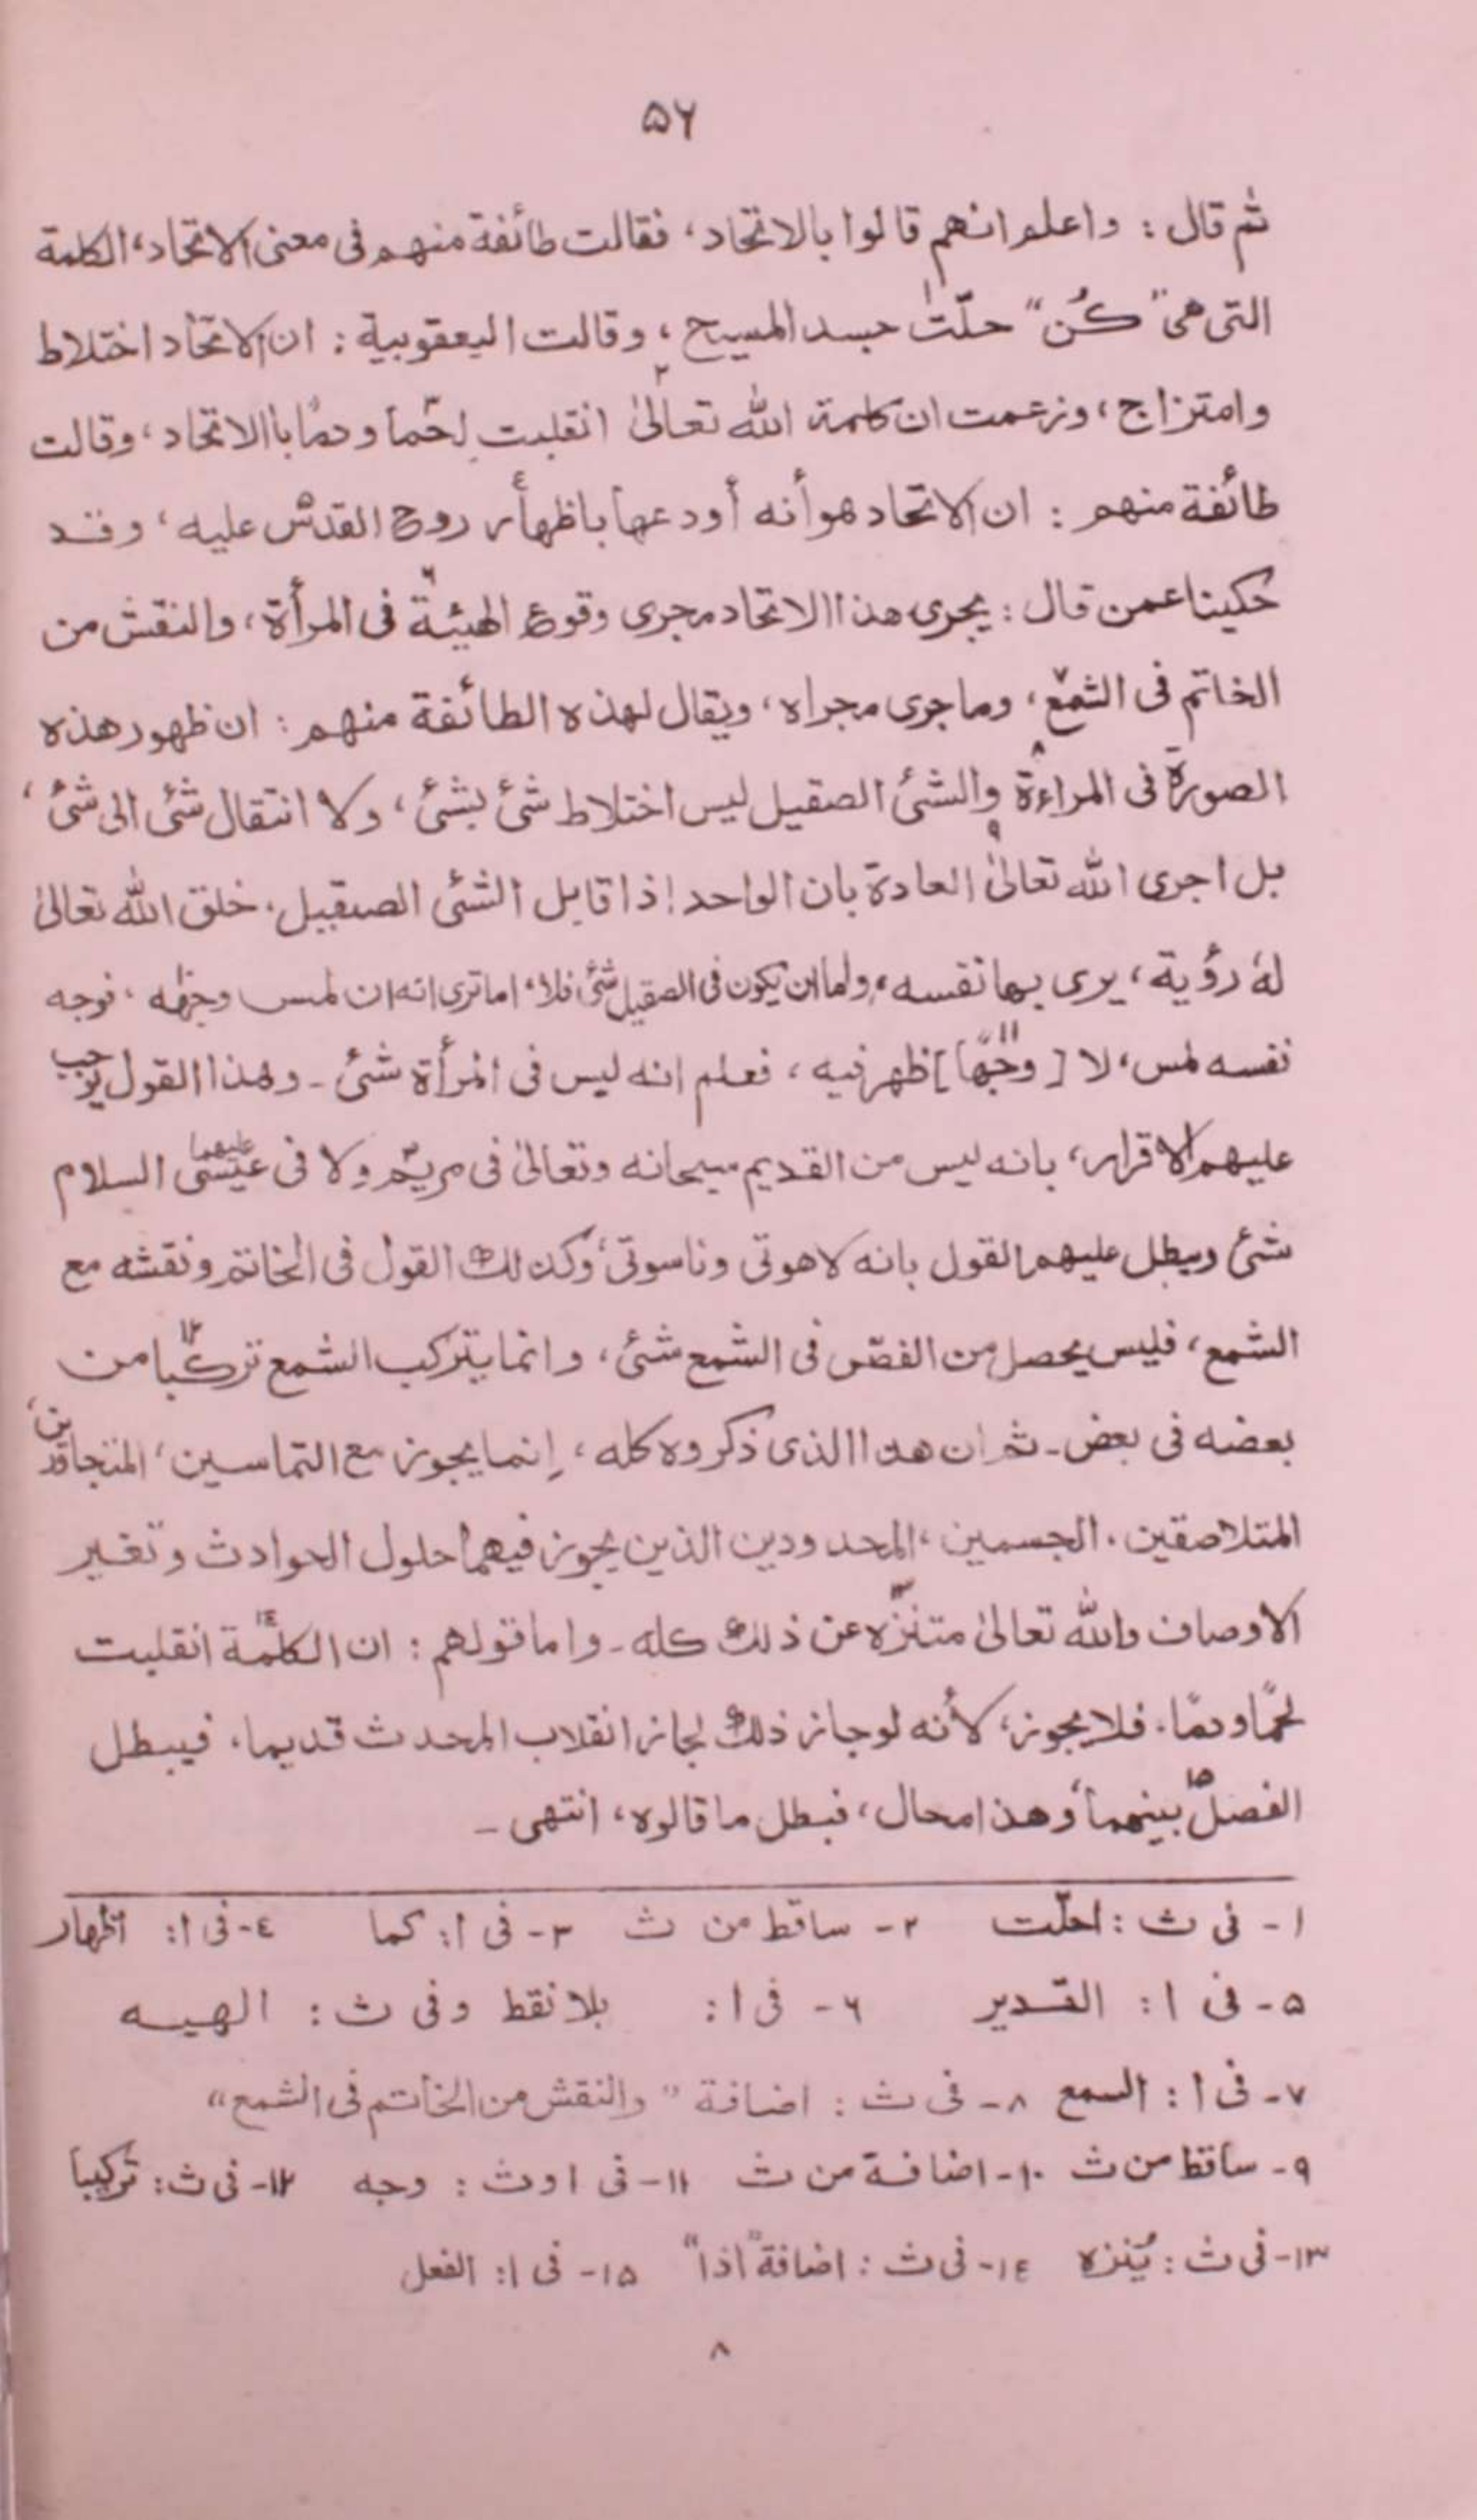 ۵۶
ثم قال : واعلم انهم قالوا بالاتحاد، فقالت طائفة منهم فى معنى الاتحاد، الكلمة
التى هى "كُن" حلّت۱ جسد المسيح ، وقالت اليعقوبية : ان الاتحاد اختلاط
وامتزاج ، وزعمت ان كلمة الله تعالىٰ۲ انقلبت لحمًا۳ ودمًا بالاتحاد ، وقالت
طائفة منهم : ان الاتحاد هو أنه أودعها باظهار٤ روح القدس۵ عليه ، وقد
حكينا عمن قال : يجرى هذا الاتحاد مجرى وقوع الهيئة۶ فى المرأة ، والنقش من
الخاتم فى الشمع۷ ، وما جرى مجراه ، ويقال لهذه الطائفة منهم : ان ظهور هذه
الصورة فى المراءة۸ والشئ الصقيل ليس اختلاط شئ بشئ ، ولا انتقال شئ الى شئ ،
بل اجرى الله تعالىٰ۹ العادة بان الواحد اذا قابل الشئ الصقيل . خلق الله تعالىٰ
لهٗ رؤية ، يرى بها نفسه ، ولما ان يكون فى الصقيل شئ فلا ، اما ترى انه ان لمس وجهه ، فوجه
نفسه لمس ، لا [وجهًا۱۱] ظهر فيه ، فعلم انه ليس فى المرأة شئ - وهذا القول يوجب
عليهم الاقرار ، بانه ليس من القديم سبحانه وتعالىٰ فى مريم ولا فى عيسىٰ عليهما السلام
شئ ويبطل عليهم القول بانه لاهوتى وناسوتى ، وكذلك القول فى الخاتم ونقشه مع
الشمع ، فليس يحصل من الفصّ فى الشمع شئ ، وانما يتركب الشمع تركبا۱۲ من
بعضه فى بعض - ثم ان هذا الذى ذكروه كله ، إنما يجوز مع التماسين ، المتجاورين ،
المتلاصقين . الجسمين ، المحدودين الذين يجوز فيهما حلول الحوادث وتغير
الاوصاف والله تعالىٰ متنزّه۱۳ عن ذلك كله - واما قولهم : ان الكلمة۱٤ انقلبت
لحمًا ودمًا . فلا يجوز ، لأنه لو جاز ذلك لجاز انقلاب المحدث قديما . فيبطل
الفصل۱۵ بينهما ، وهذا محال ، فبطل ما قالوه ، انتهى -
۱ - فى ث : احلّت ۲ - ساقط من ث ۳ - فى ا : كما ٤ - فى ا : اظهار
۵ - فى ا : القدير ۶ - فى ا : بلا نقط وفى ث : الهيه
۷ - فى ا : السمع ۸ - فى ث : اضافة "والنقش من الخاتم فى الشمع"
۹ - ساقط من ث ۱۰ - اضافة من ث ۱۱ - فى ا و ث : وجه ۱۲ - فى ث : تركيبا
۱۳ - فى ث : يُنزه ۱٤ - فى ث : اضافة "اذا" ۱۵ - فى ا : الفعل
۸